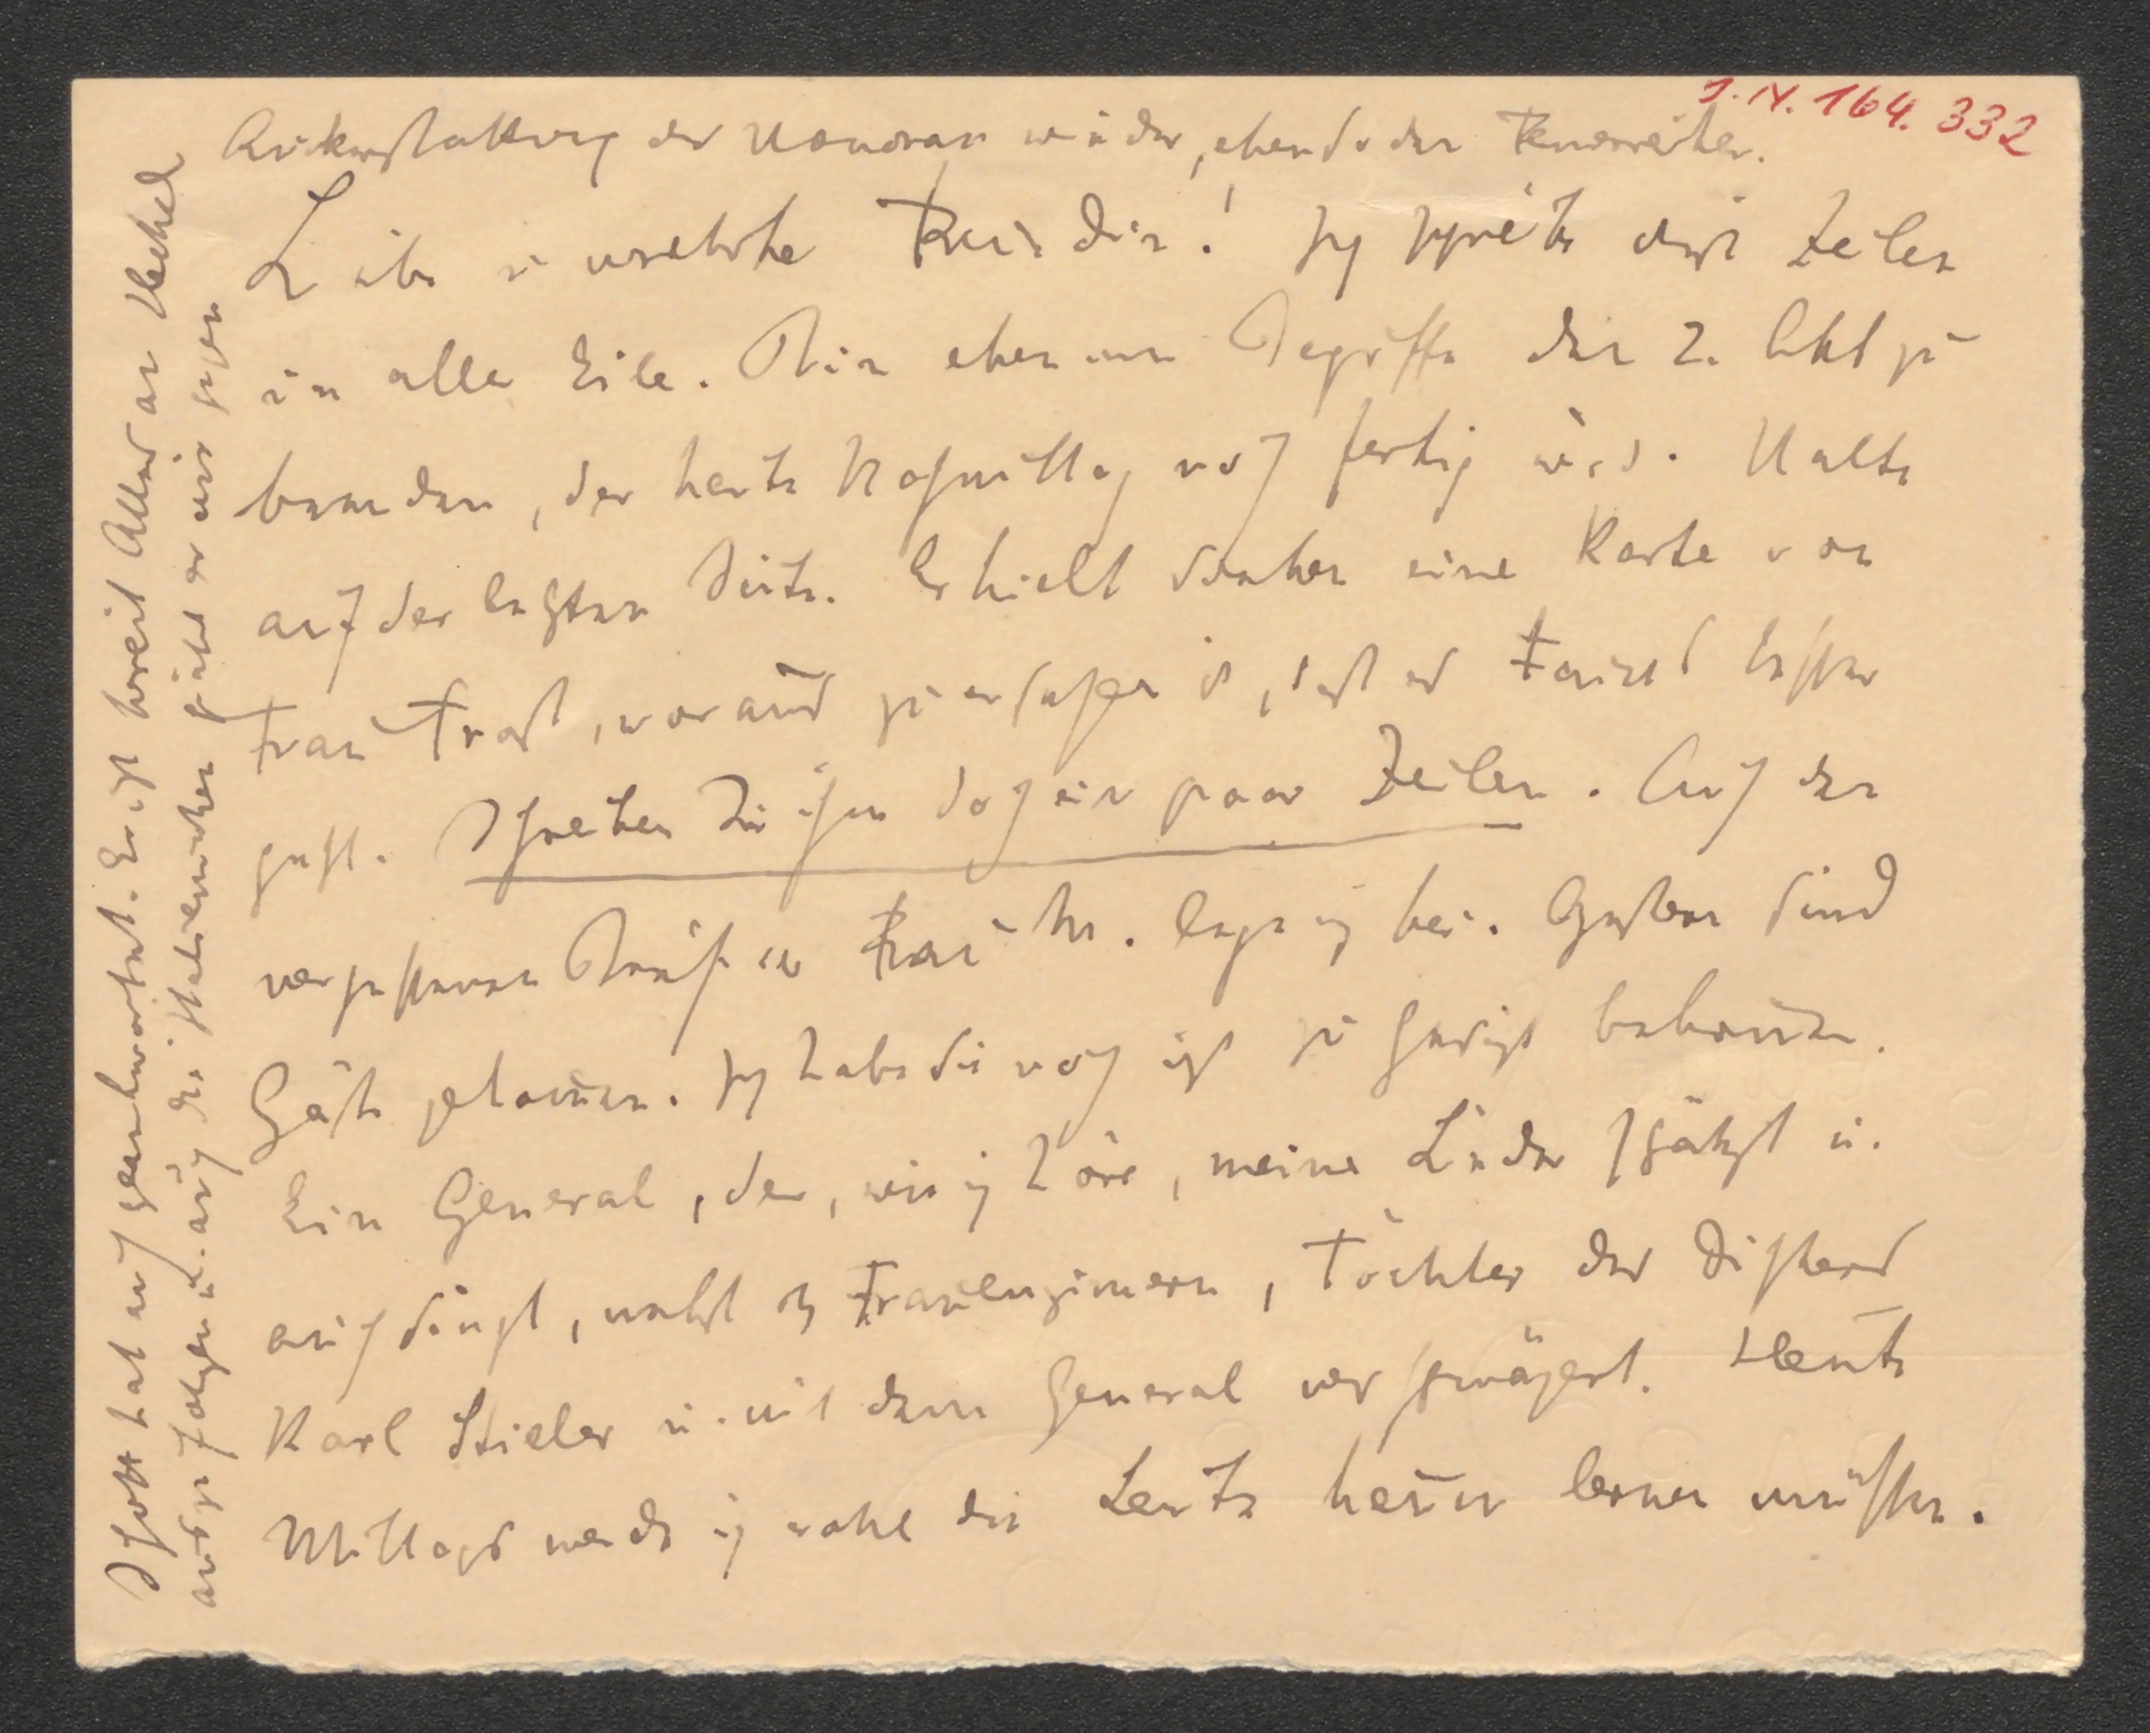 J. N. 164.332
Rückerstattung der Honorare wieder, ebenso der
Liebe u verehrte Freundin! Ich schreibe diese Zeilen
in aller Eile. Bin eben im Begriffe den 2. Akt zu
beenden, der heute Nachmittag noch fertig wird. Halte
auf der letzten Seite. Erhielt soeben eine Karte von
Frau Frast, woraus zu ersehen ist, dass es Freund besser
geht. Schreiben Sie ihm doch ein paar Zeilen. Auch den
vergessenen Brief der Frau M. lege ich bei. Gestern sind
Gäste gekommen. Ich habe sie noch nicht zu Gesicht bekommen.
Ein General, der, wie ich höre, meine Lieder schätzt u.
auch singt, nebst 3 Frauenzimmern, Töchter des Dichters
Karl Stieler u. mit dem General verschwägert. Heute
Mittags werde ich wohl die Leute kennen lernen müssen.
Schott hat auch geantwortet. Er ist bereit Alles an Heckel
auszufolgen u. auch die Italienischen gibt er uns